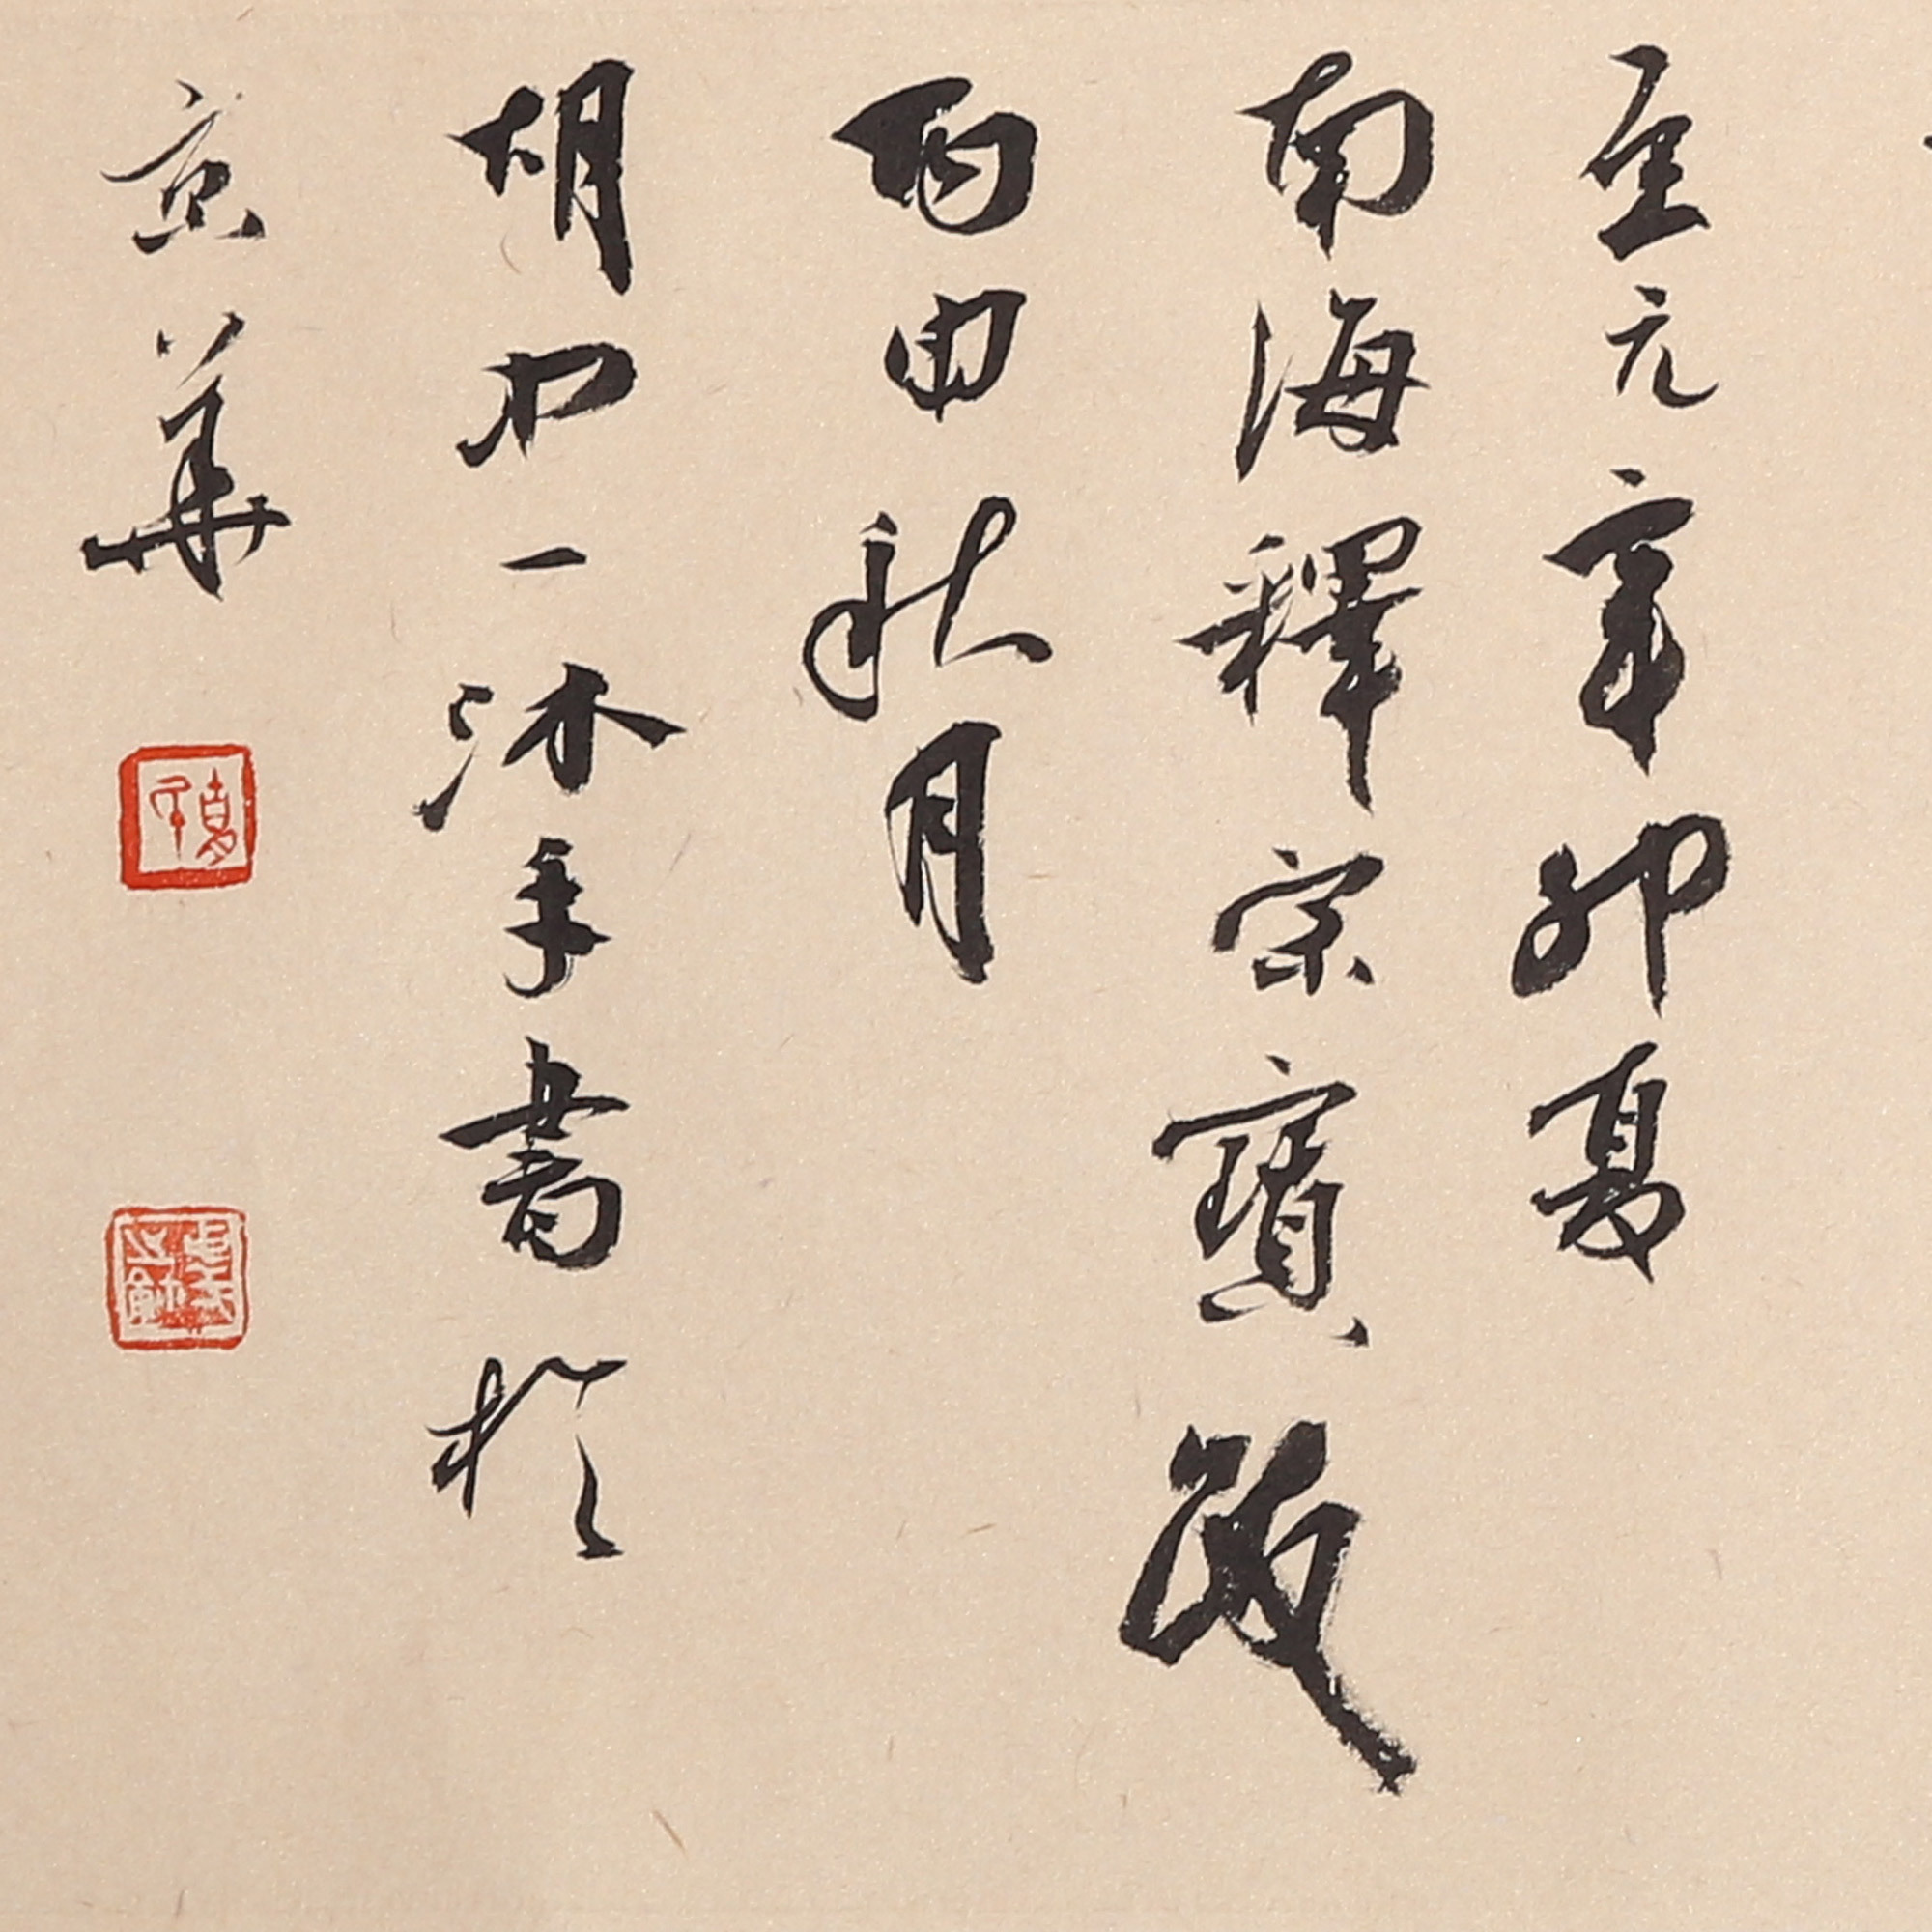 至元辛卯夏
南海釋宗寶跋
丙申秋月
胡一沐手書於
京華